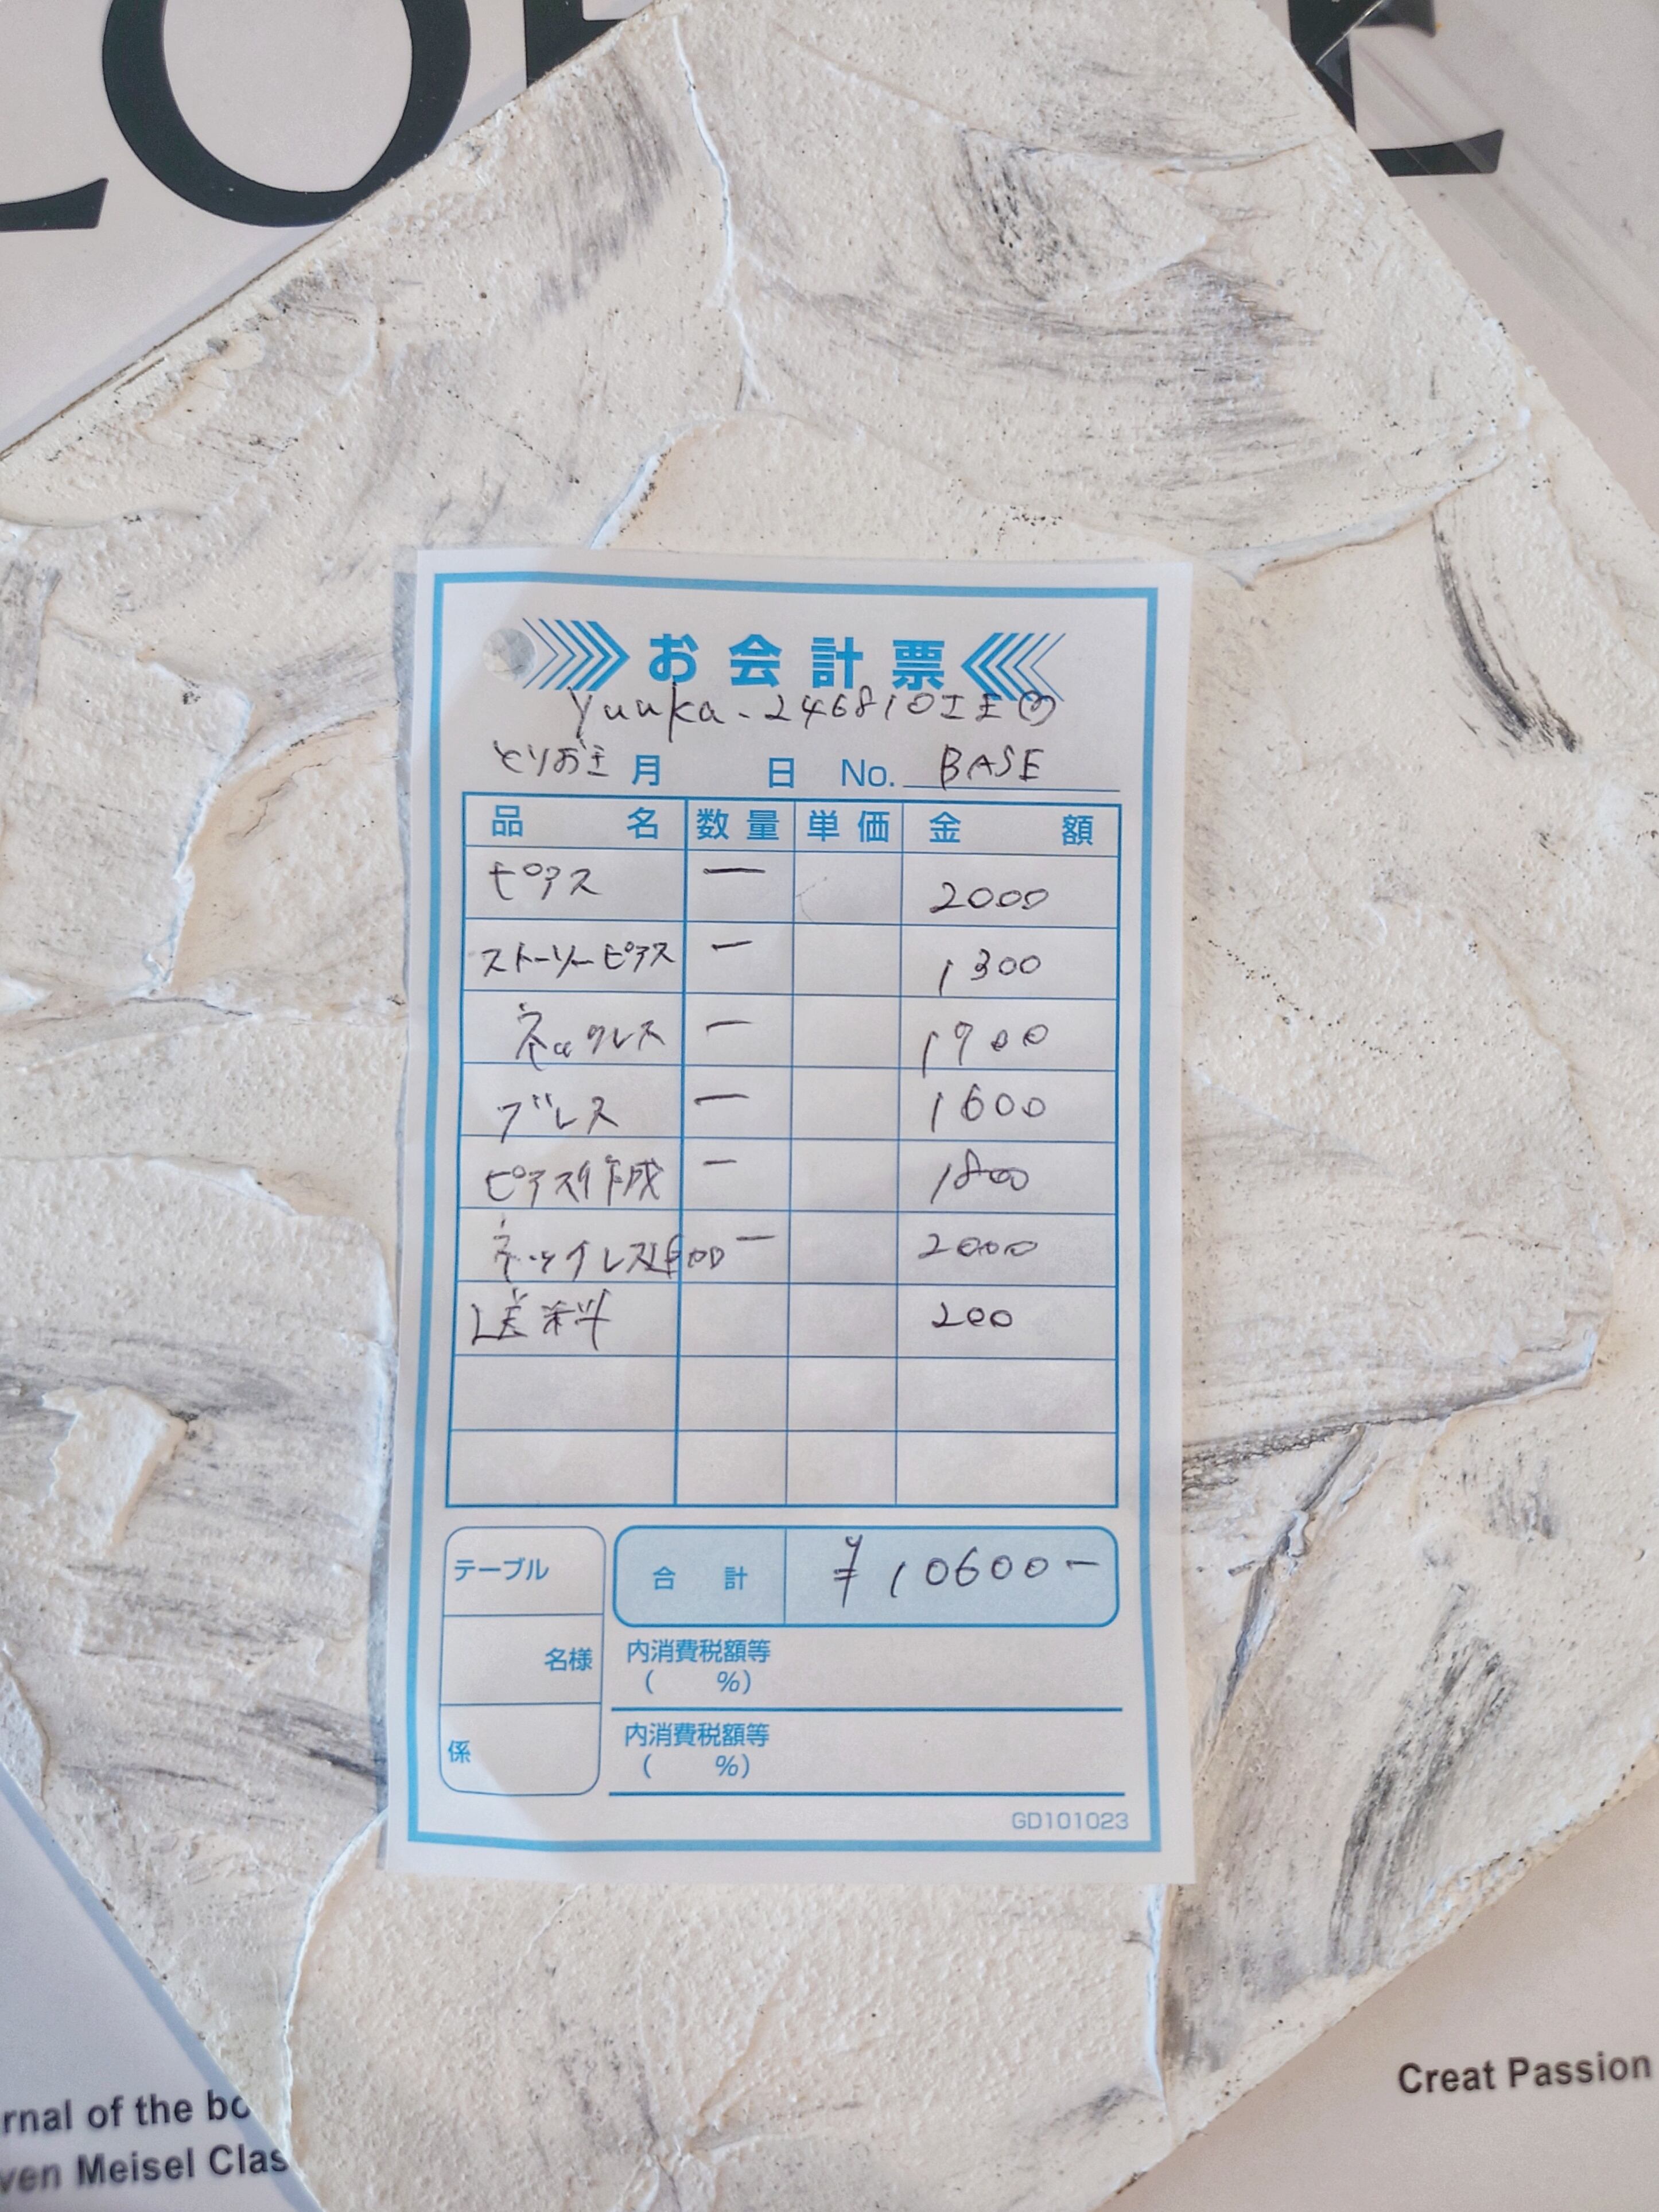 お会計票
yuuka-246810
とりおき 月 日 No. BASE
品名 数量 単価 金額
ピアス 一 2000
ストーリーピアス 一 1300
ネックレス 一 1700
ブレス 一 1600
ピアス作成 一 1800
ネックレス追加 一 2000
送料 200
テーブル
合計 ¥10600-
名様
内消費税額等
( %)
係
内消費税額等
( %)
GD101023
Creat Passion
rnal of the bo
ven Meisel Clas